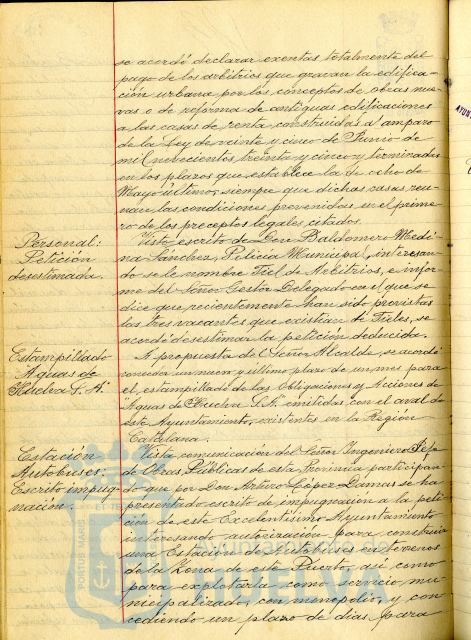 se acordó declarar exentas totalmente del
pago de los arbitrios que gravan la edifica-
ción urbana por los conceptos de obras nue-
vas o de reforma de antiguas edificaciones
a las casas de renta construidas al amparo
de la Ley de veinte y cinco de Junio de
mil novecientos treinta y cinco y terminadas
en los plazos que establece la de ocho de
Mayo último, siempre que dichas casas reu-
nan las condiciones prevenidas en el prime-
ro de los preceptos legales citados.
Personal:
Petición
desestimada.
Visto escrito de Don Baldomero Medi-
na Sánchez, Policía Municipal, interesan-
do se le nombre Fiel de Arbitrios, e infor-
me del Señor Gestor Delegado en el que se
dice que recientemente han sido provistas
las tres vacantes que existían de Fieles, se
acordó desestimar la petición deducida.
Estampillado
"Aguas de
Huelva S. A."
A propuesta del Señor Alcalde, se acordó
conceder un nuevo y último plazo de un mes para
el estampillado de las Obligaciones y Acciones de
"Aguas de Huelva S.A." emitidas con el aval de
este Ayuntamiento, existentes en la Región
Catalana.
Estación
Autobuses:
Escrito impug-
nación.
Vista comunicación del Señor Ingeniero Jefe
de Obras Públicas de esta Provincia participan-
do que por Don Arturo López Damas se ha
presentado escrito de impugnación a la peti-
ción de este Excelentísimo Ayuntamiento
interesando autorización para construir
una Estación de Autobuses en terrenos
de la Zona de este Puerto, así como
para explotarla como servicio mu-
nicipalizado, con monopolio, y con-
cediendo un plazo de días para
PORTUS MARIS
ET TE